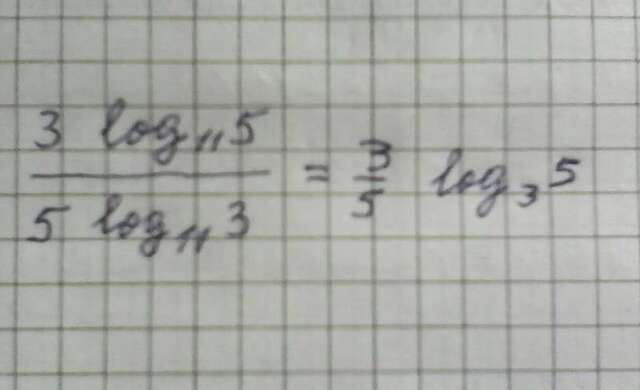 3 log₁₁5
5 log₁₁3
= 3/5 log₃5